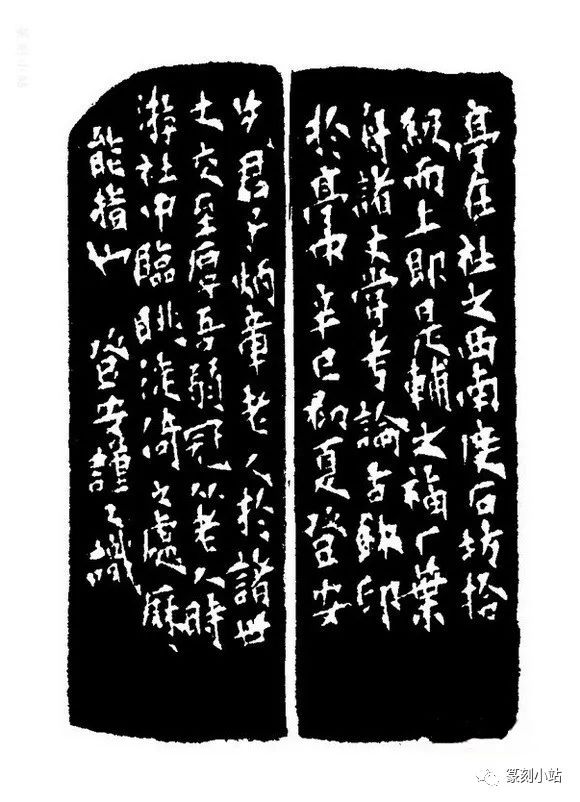 亭在社之西南度石坊拾
級而上即是輔之福厂葉
舟諸丈嘗考論古鉨印
於亭中辛巳初夏登安
君子炳章老人於諸世
丈交至厚吾弱冠从老人時
游社中臨眺徙倚之處歷〻
能指也 登安謹又識
篆刻小站